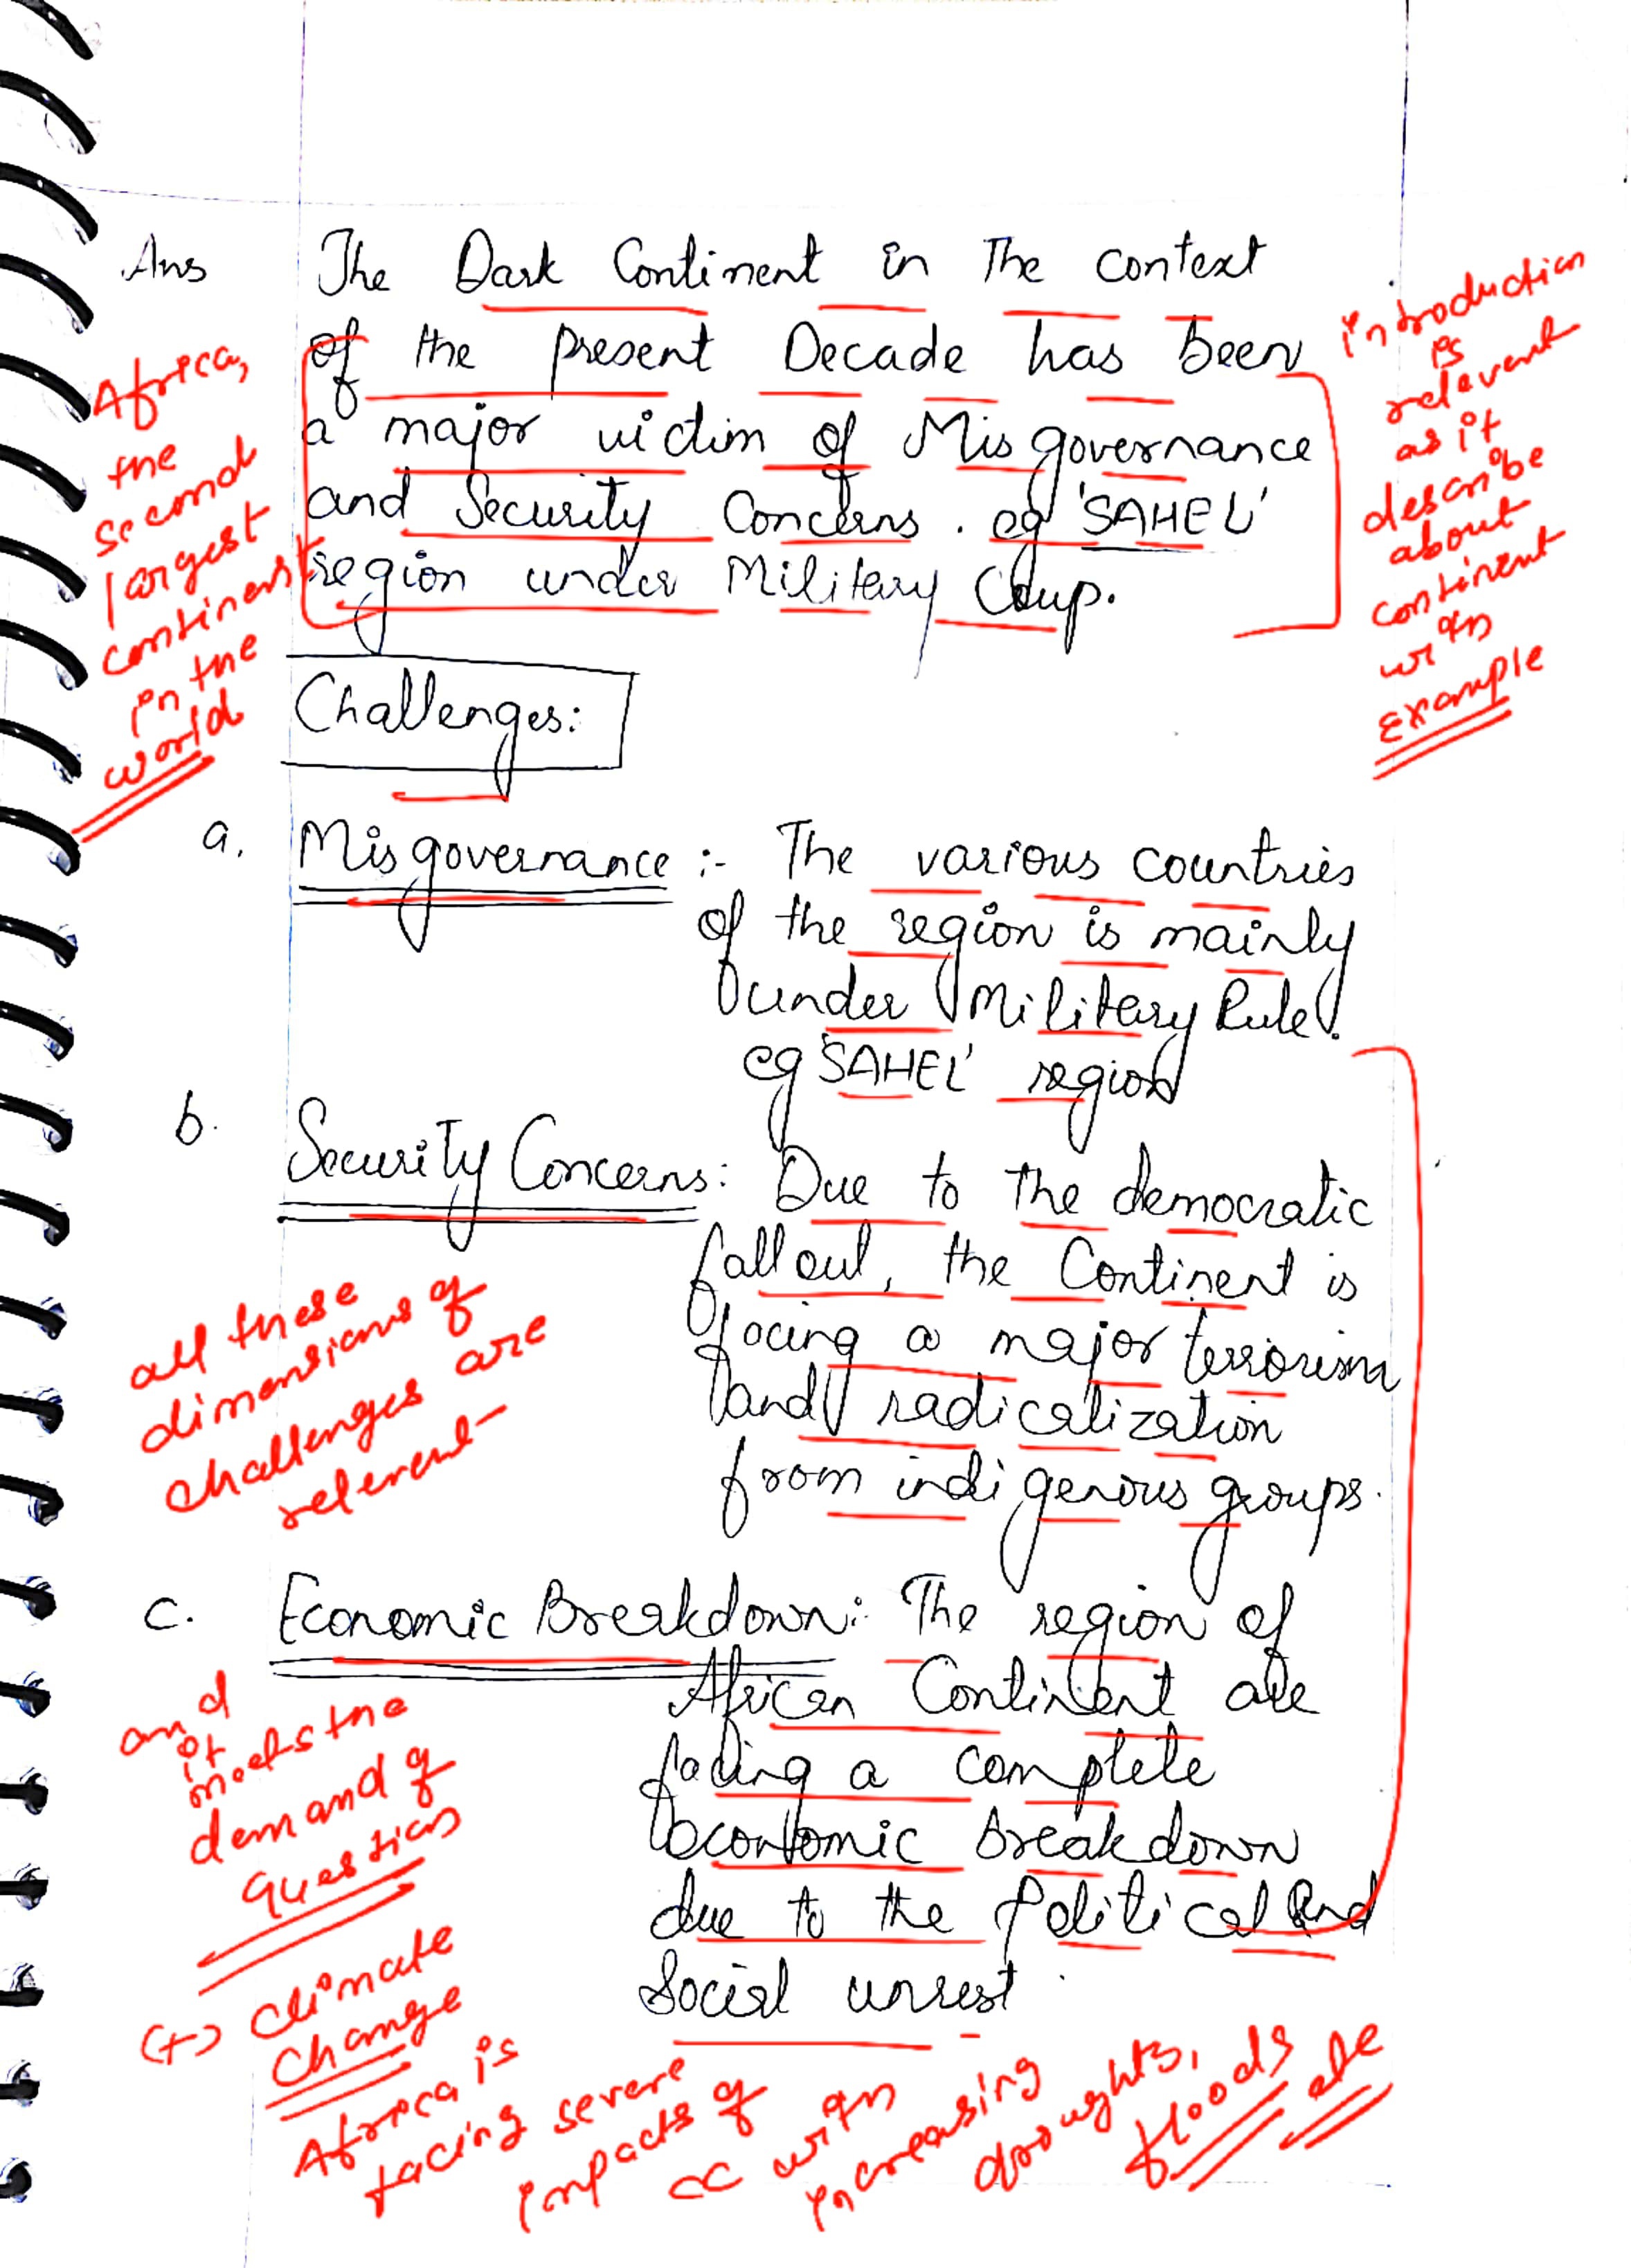 Ans The Dark Continent in The context
of the present Decade has been
a major victim of Misgovernance
and Security Concerns. eg 'SAHEL'
region under Military Coup.
Africa,
the
second
largest
continent
in the
world
introduction
is
relevant
as it
describe
about
continent
with
Example
Challenges:
a. Misgovernance :- The various countries
of the region is mainly
under Military Rule.
eg 'SAHEL' region
b. Security Concerns: Due to The democratic
fallout, the Continent is
facing a major terrorism
and radicalization
from indigenous groups.
all these
dimensions of
challenges are
relevent
c. Economic Breakdown: The region of
African Continent are
facing a complete
economic Breakdown
due to the Political and
Social unrest.
and
it
meets the
demand of
question
(+) Climate
Change
Africa is
facing severe
impacts of
CC with
increasing
droughts,
floods
etc